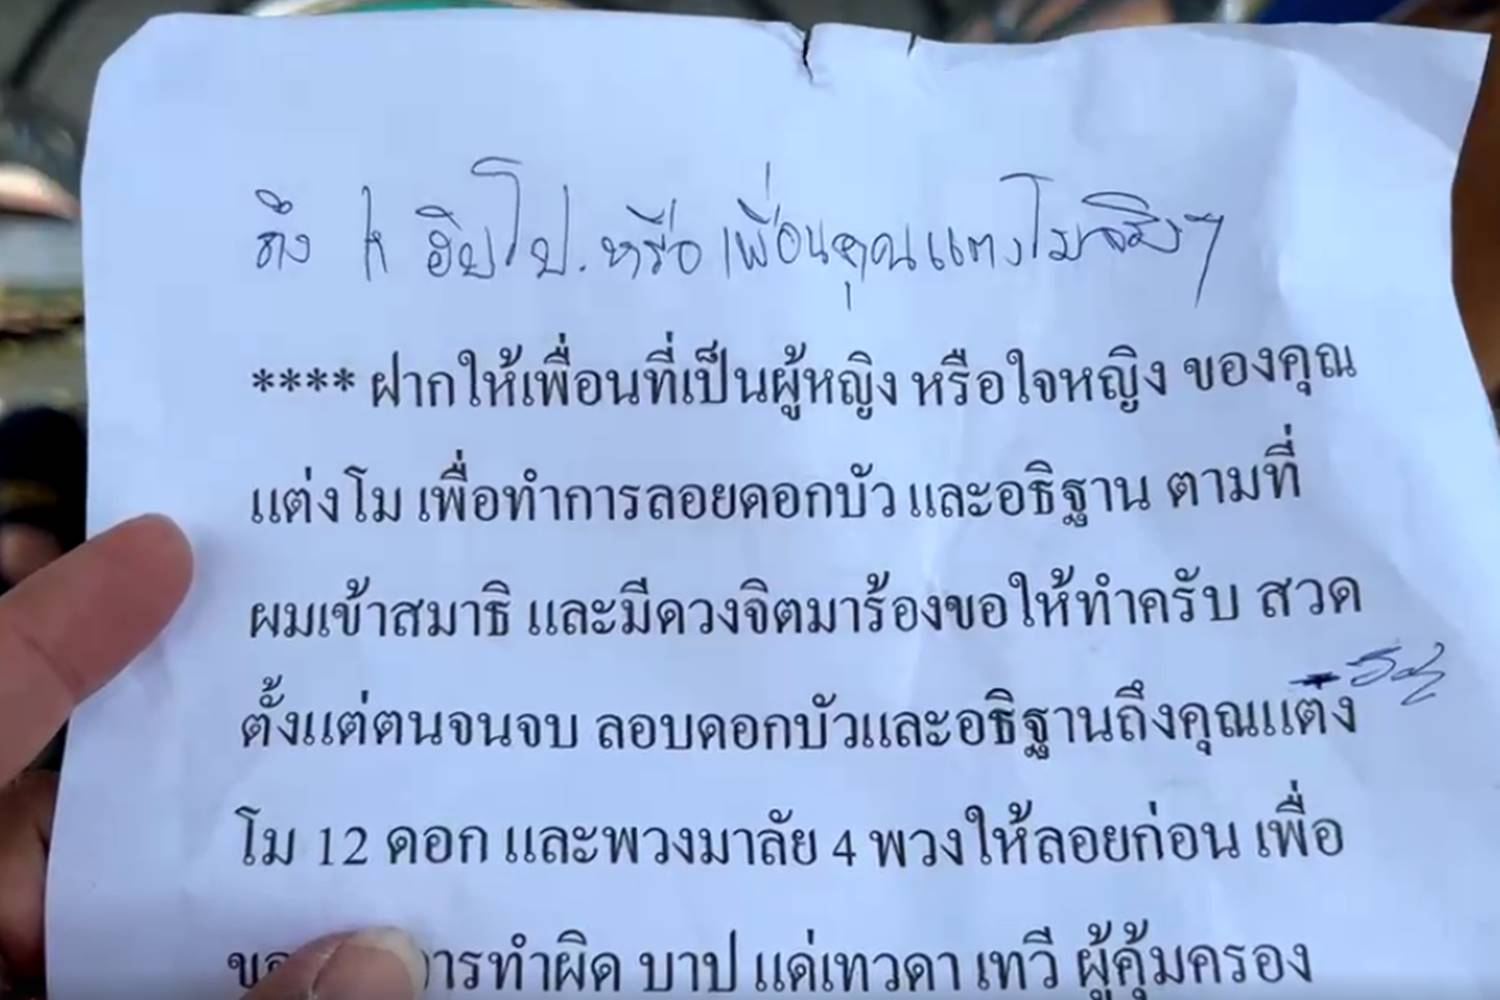 ถึง K ฮิปโป. หรือ เพื่อนคุณแตงโมจริงๆ
**** ฝากให้เพื่อนที่เป็นผู้หญิง หรือใจหญิง ของคุณ
แต่งโม เพื่อทำการลอยดอกบัว และอธิฐาน ตามที่
ผมเข้าสมาธิ และมีดวงจิตมาร้องขอให้ทำครับ สวด
ตั้งแต่ตนจนจบ ลอบดอกบัวและอธิฐานถึงคุณแตง
โม 12 ดอก และพวงมาลัย 4 พวงให้ลอยก่อน เพื่อ
การทำผิด บาป แด่เทวดา เทวี ผู้คุ้มครอง